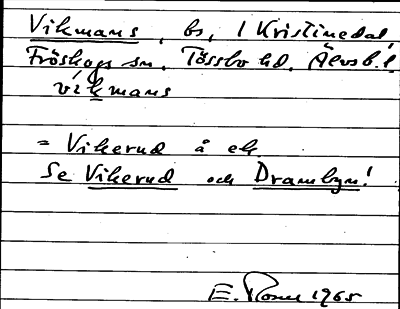 Vikmans, bs, 1 Kristinedal
Fröskogs sn. Tössbo hd. Älvsb. l.
vikmans
= Vikerud å ek.
Se Vikerud och Drambyn!
E. 1965